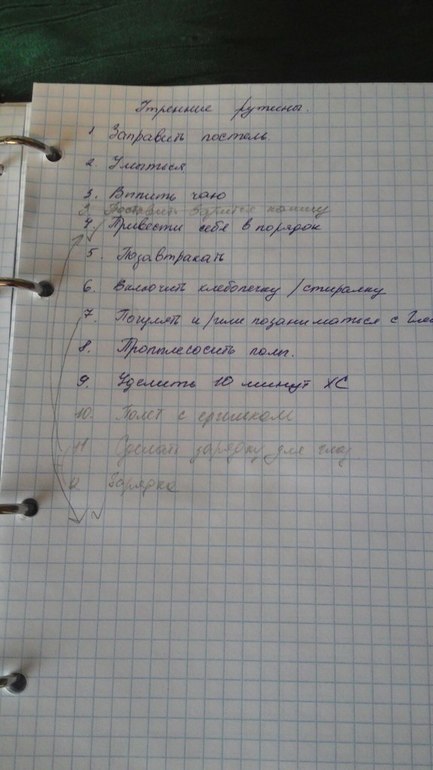 Утренние рутины.
1. Заправить постель.
2. Умыться
3. Выпить чаю
3.
4. Привести себя в порядок
5. Позавтракать
6. Включить хлебопечку / стиралку
7 Погулять и/или позаниматься с
8. Пропылесосить полы.
9. Уделить 10 минут ХС
10. Полет с ершиком
11 Сделать зарядку для глаз
Зарядка